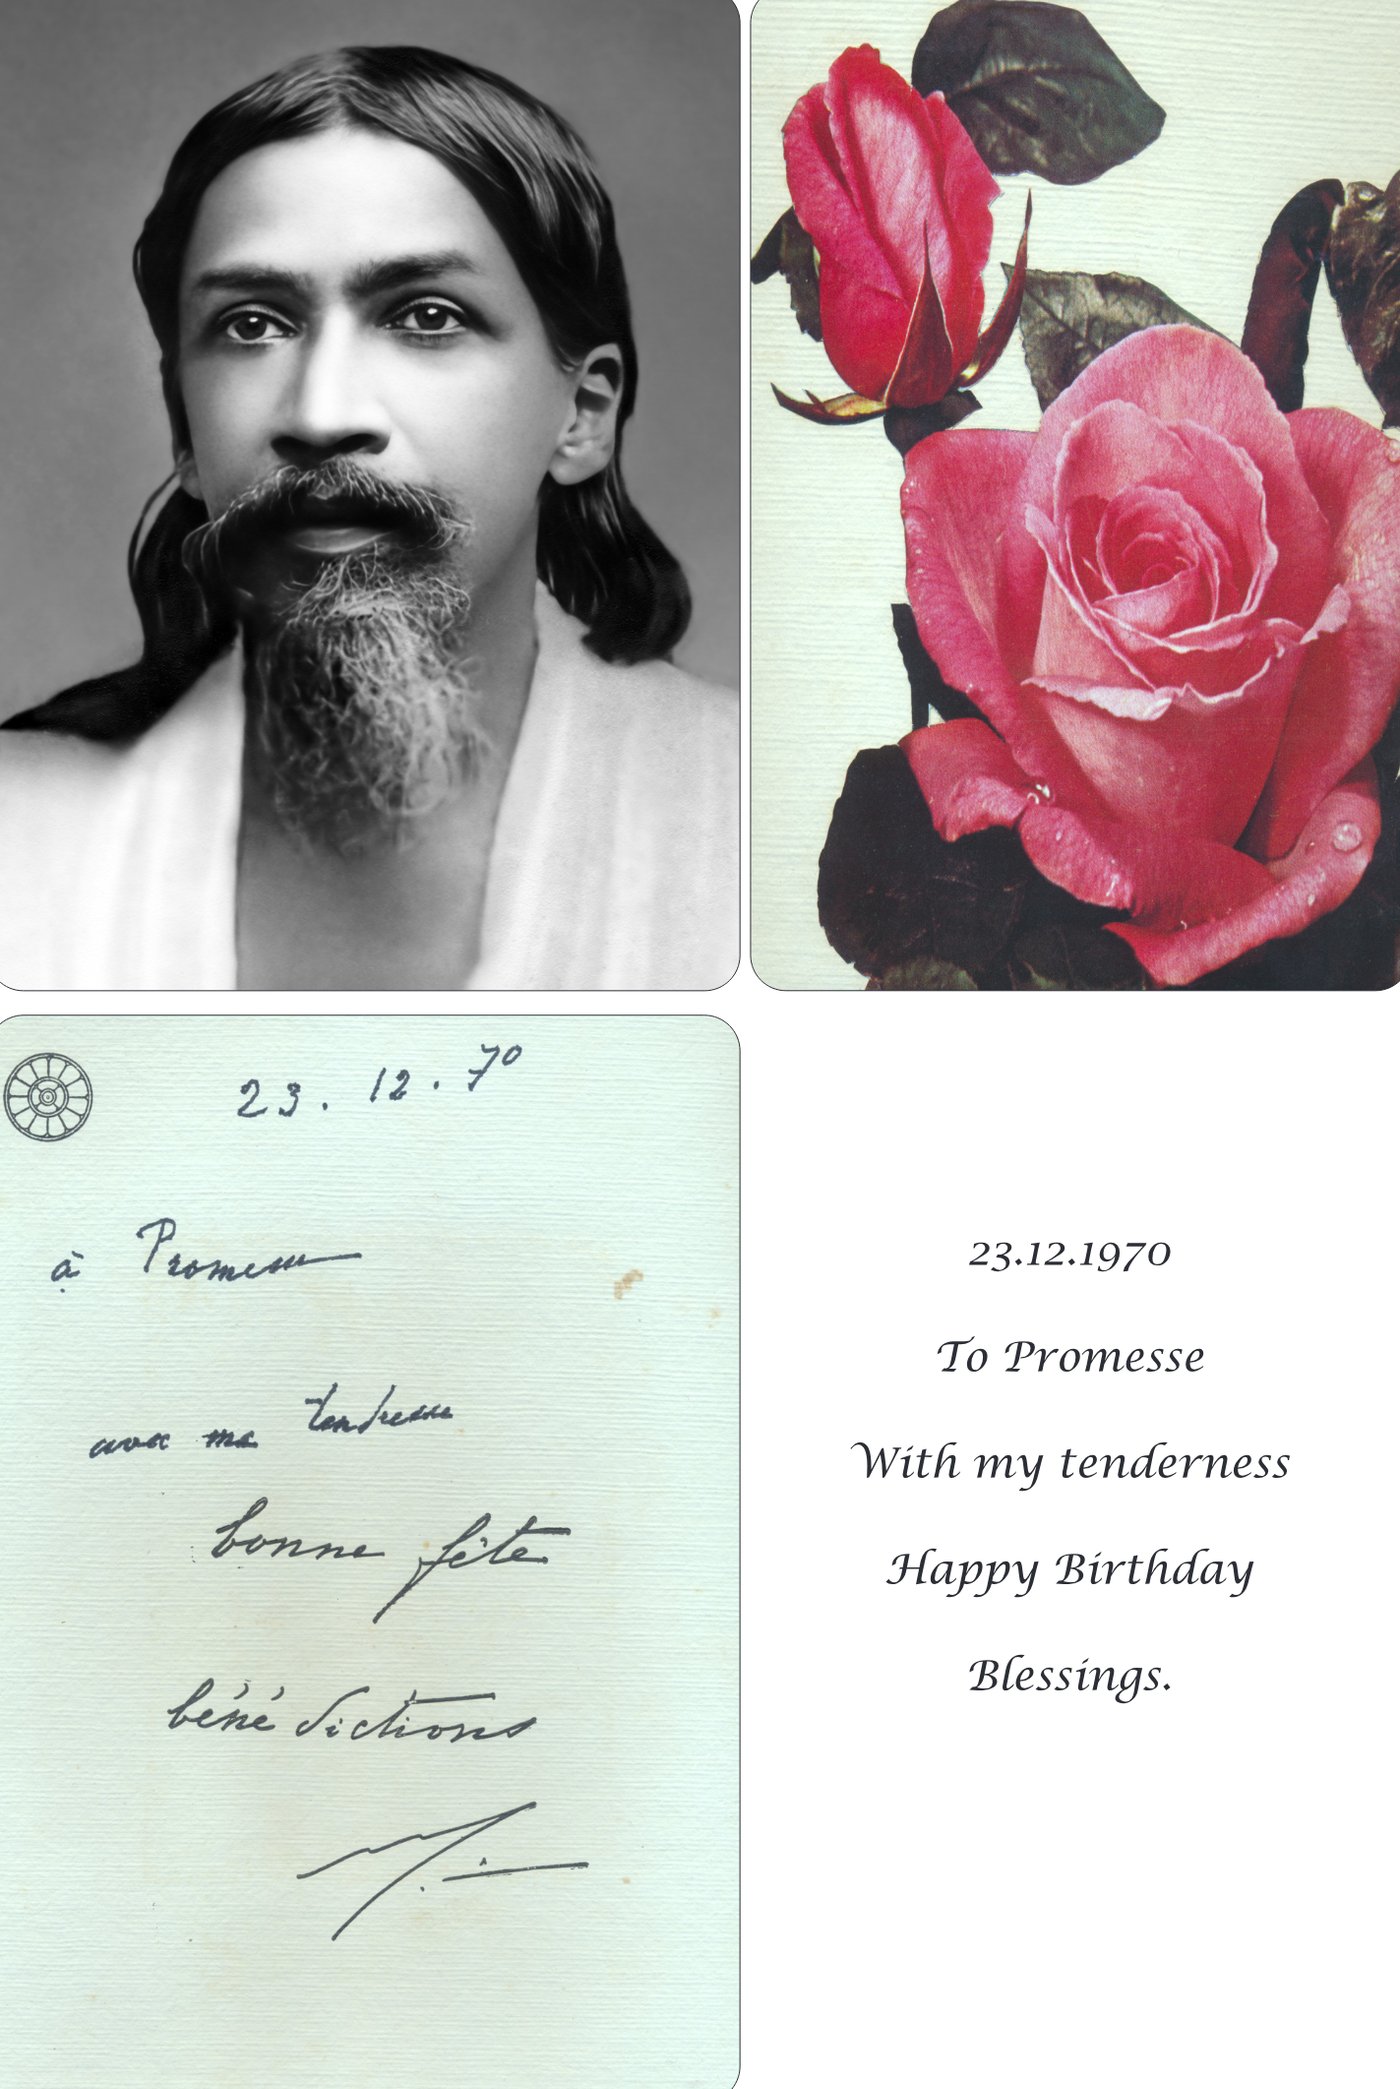 23. 12. 70
à Promesse
avec ma tendresse
bonne fête
bénédictions
23.12.1970
To Promesse
With my tenderness
Happy Birthday
Blessings.